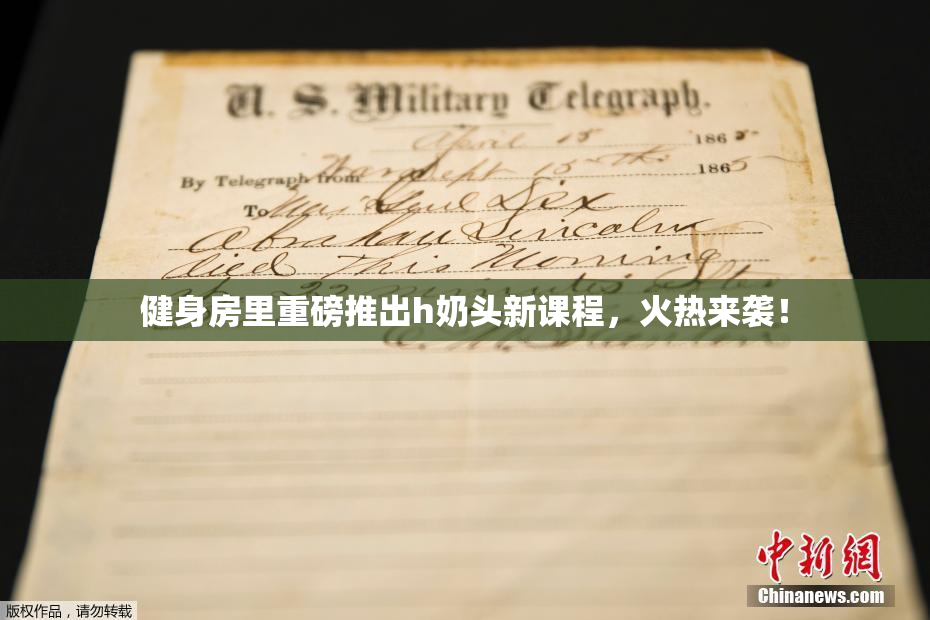 U. S. Military Telegraph.
April 15 1865
By Telegraph from War Dept 15th 1865
To Maj Genl Dix
Abraham Lincoln
died This Morning
at 22 minutes after
健身房里重磅推出h奶头新课程，火热来袭！
E. M. Stanton
中新網
Chinanews.com
版权作品，请勿转载